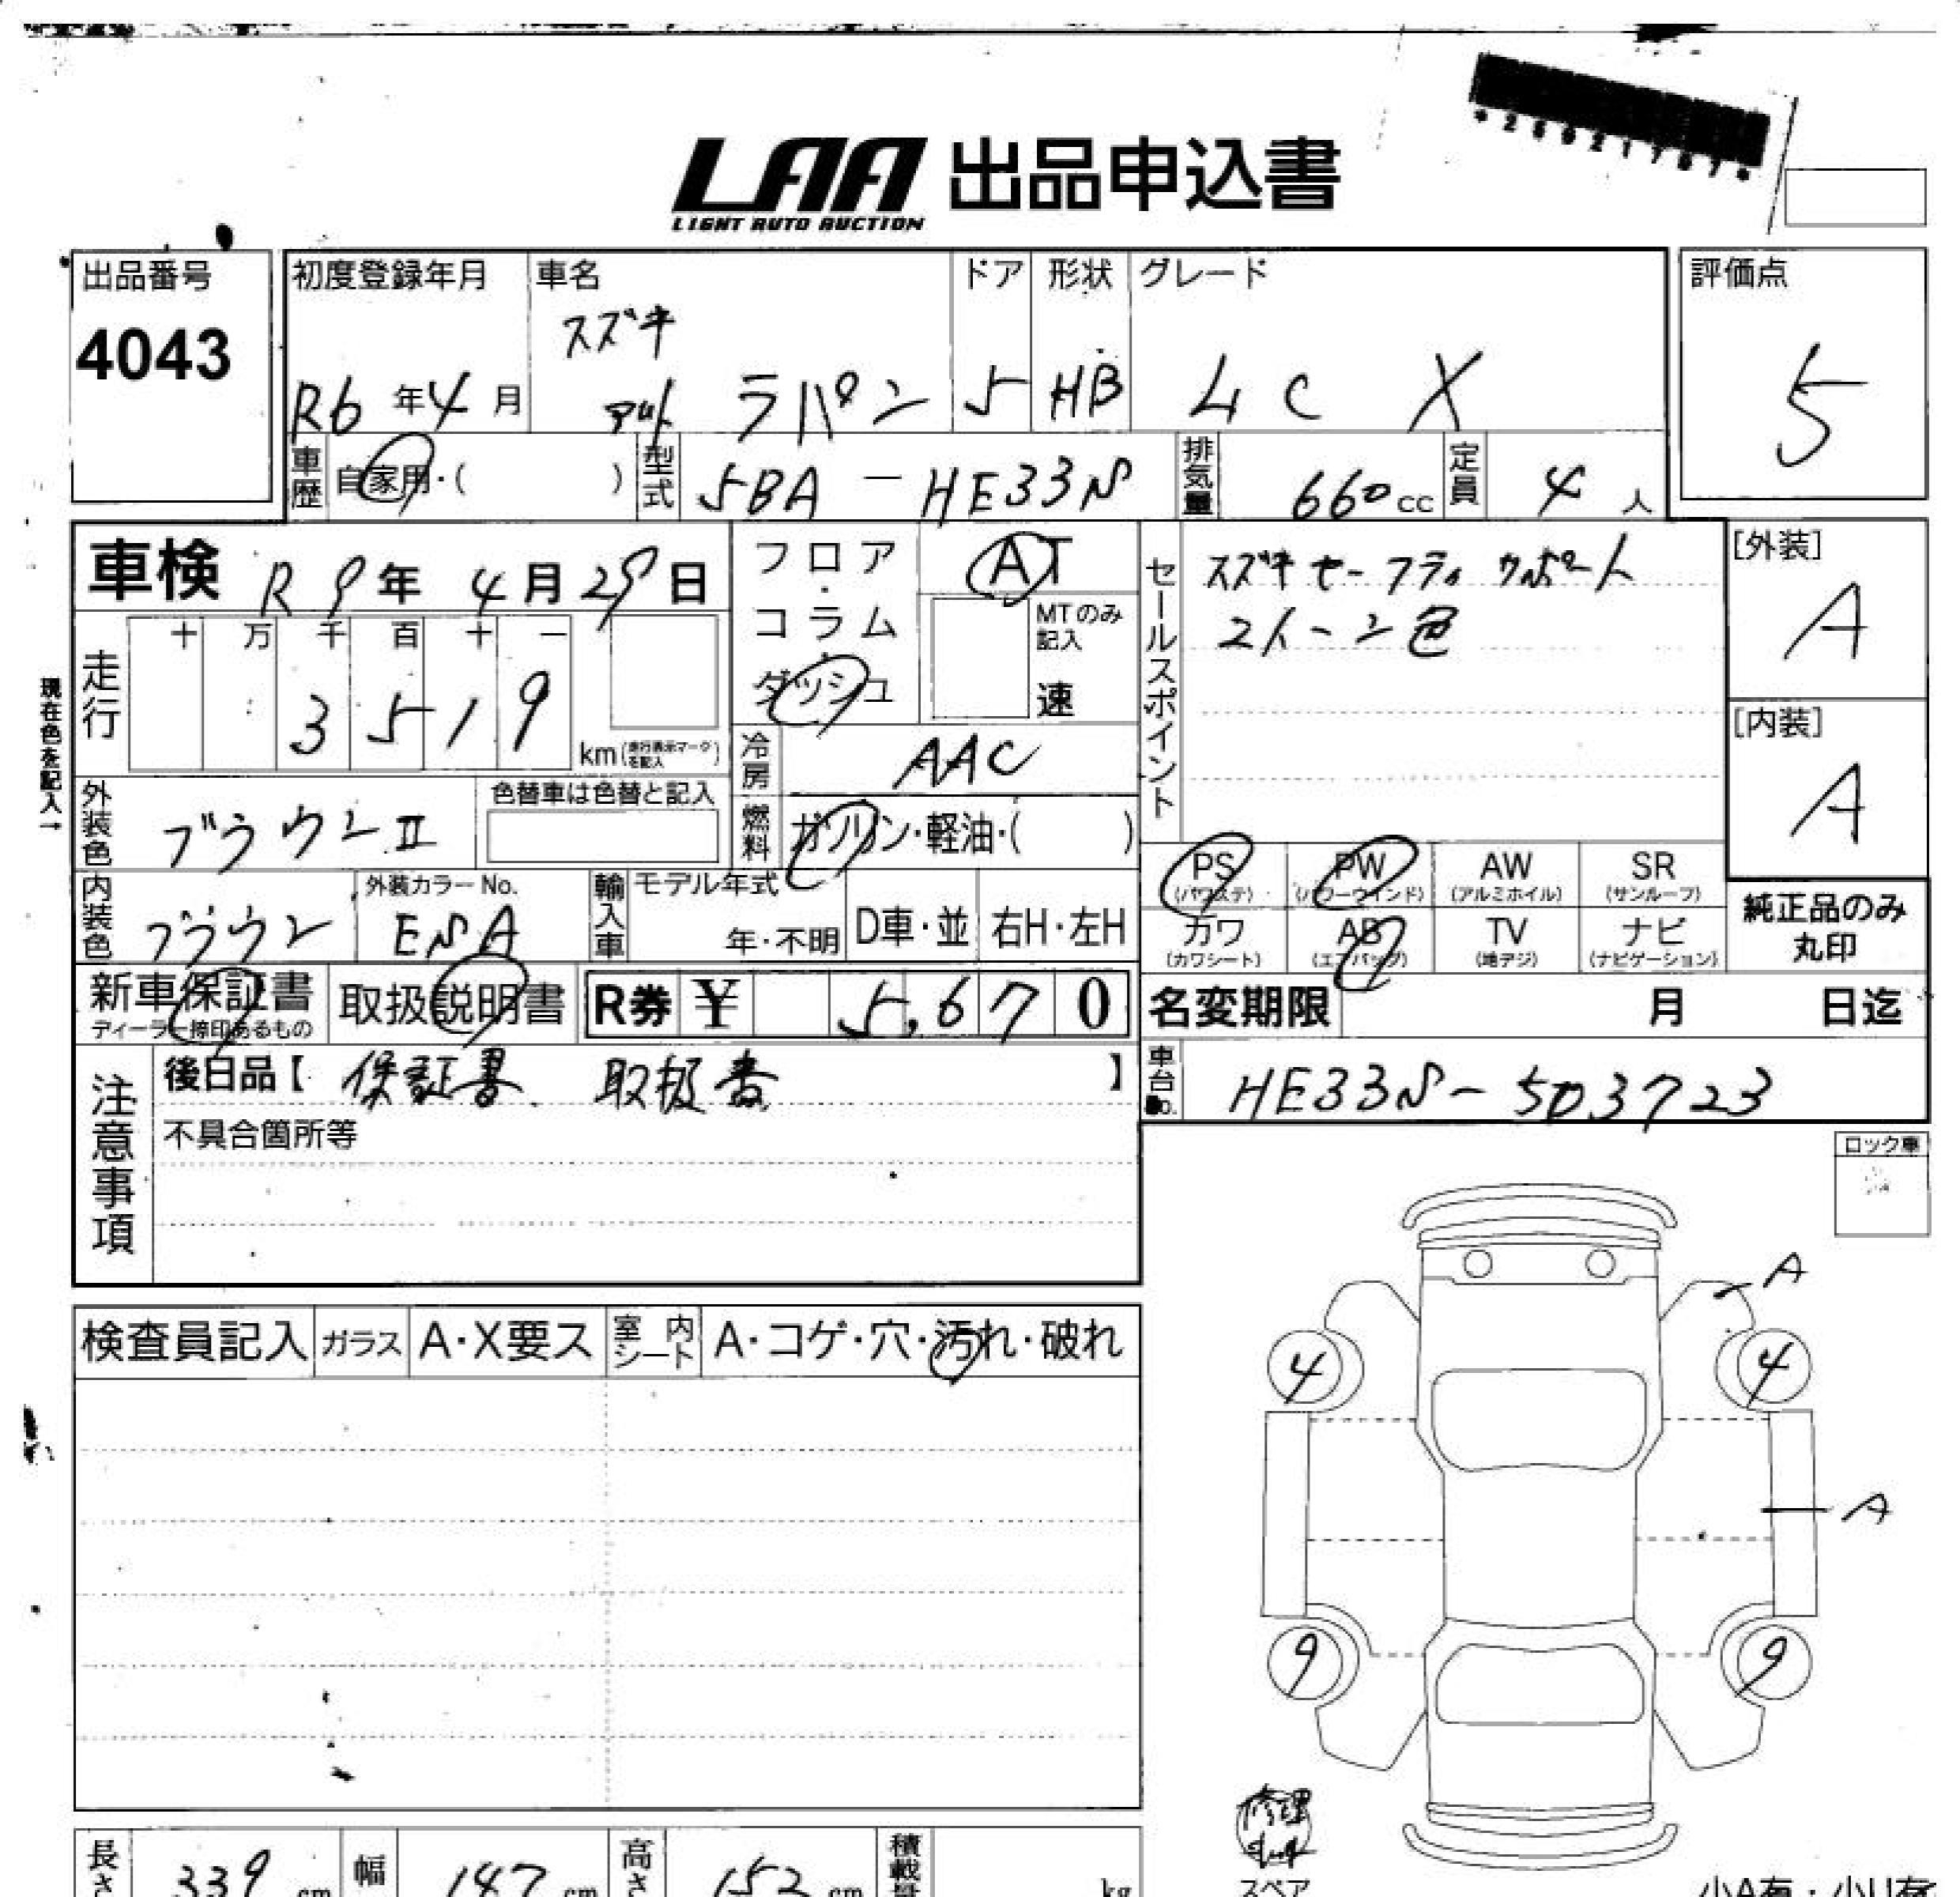 *25921787*
LAA 出品申込書
LIGHT AUTO AUCTION
出品番号
4043
初度登録年月
R6 年 4 月
車名
スズキ
アルト ラパン
ドア
5
形状
HB
グレード
LC X
評価点
5
車歴
自家用・( )
型式
5BA - HE33S
排気量
660 cc
定員
4 人
車検 R 9 年 4 月 29 日
フロア・コラム・ダッシュ
AT
MTのみ記入
速
セールスポイント
スズキセーフティサポート
2トーン色
[外装]
A
[内装]
A
現在色を記入→
走行
十 万 千 百 十 一
3 5 1 9
km(走行表示マークを記入)
冷房
AAC
外装色
ブラウンII
色替車は色替と記入
燃料
ガソリン・軽油・( )
PS
(パワステ)
PW
(パワーウインド)
AW
(アルミホイル)
SR
(サンルーフ)
カワ
(カワシート)
AB
(エアバッグ)
TV
(地デジ)
ナビ
(ナビゲーション)
純正品のみ
丸印
内装色
ブラウン
外装カラーNo.
ENA
輸入車
モデル年式
年・不明
D車・並
右H・左H
新車保証書
ディーラー捺印あるもの
取扱説明書
R券 ¥ 5,670
名変期限 月 日迄
注意事項
後日品【 保証書 取扱書 】
車台No.
HE33S-503723
不具合箇所等
ロック車
A
4
4
A
9
9
検査員記入
ガラス
A・X要ス
室内シート
A・コゲ・穴・汚れ・破れ
修理
キット
スペア
長さ 339 cm
幅 147 cm
高さ 152 cm
積載量 kg
小A有・小U有